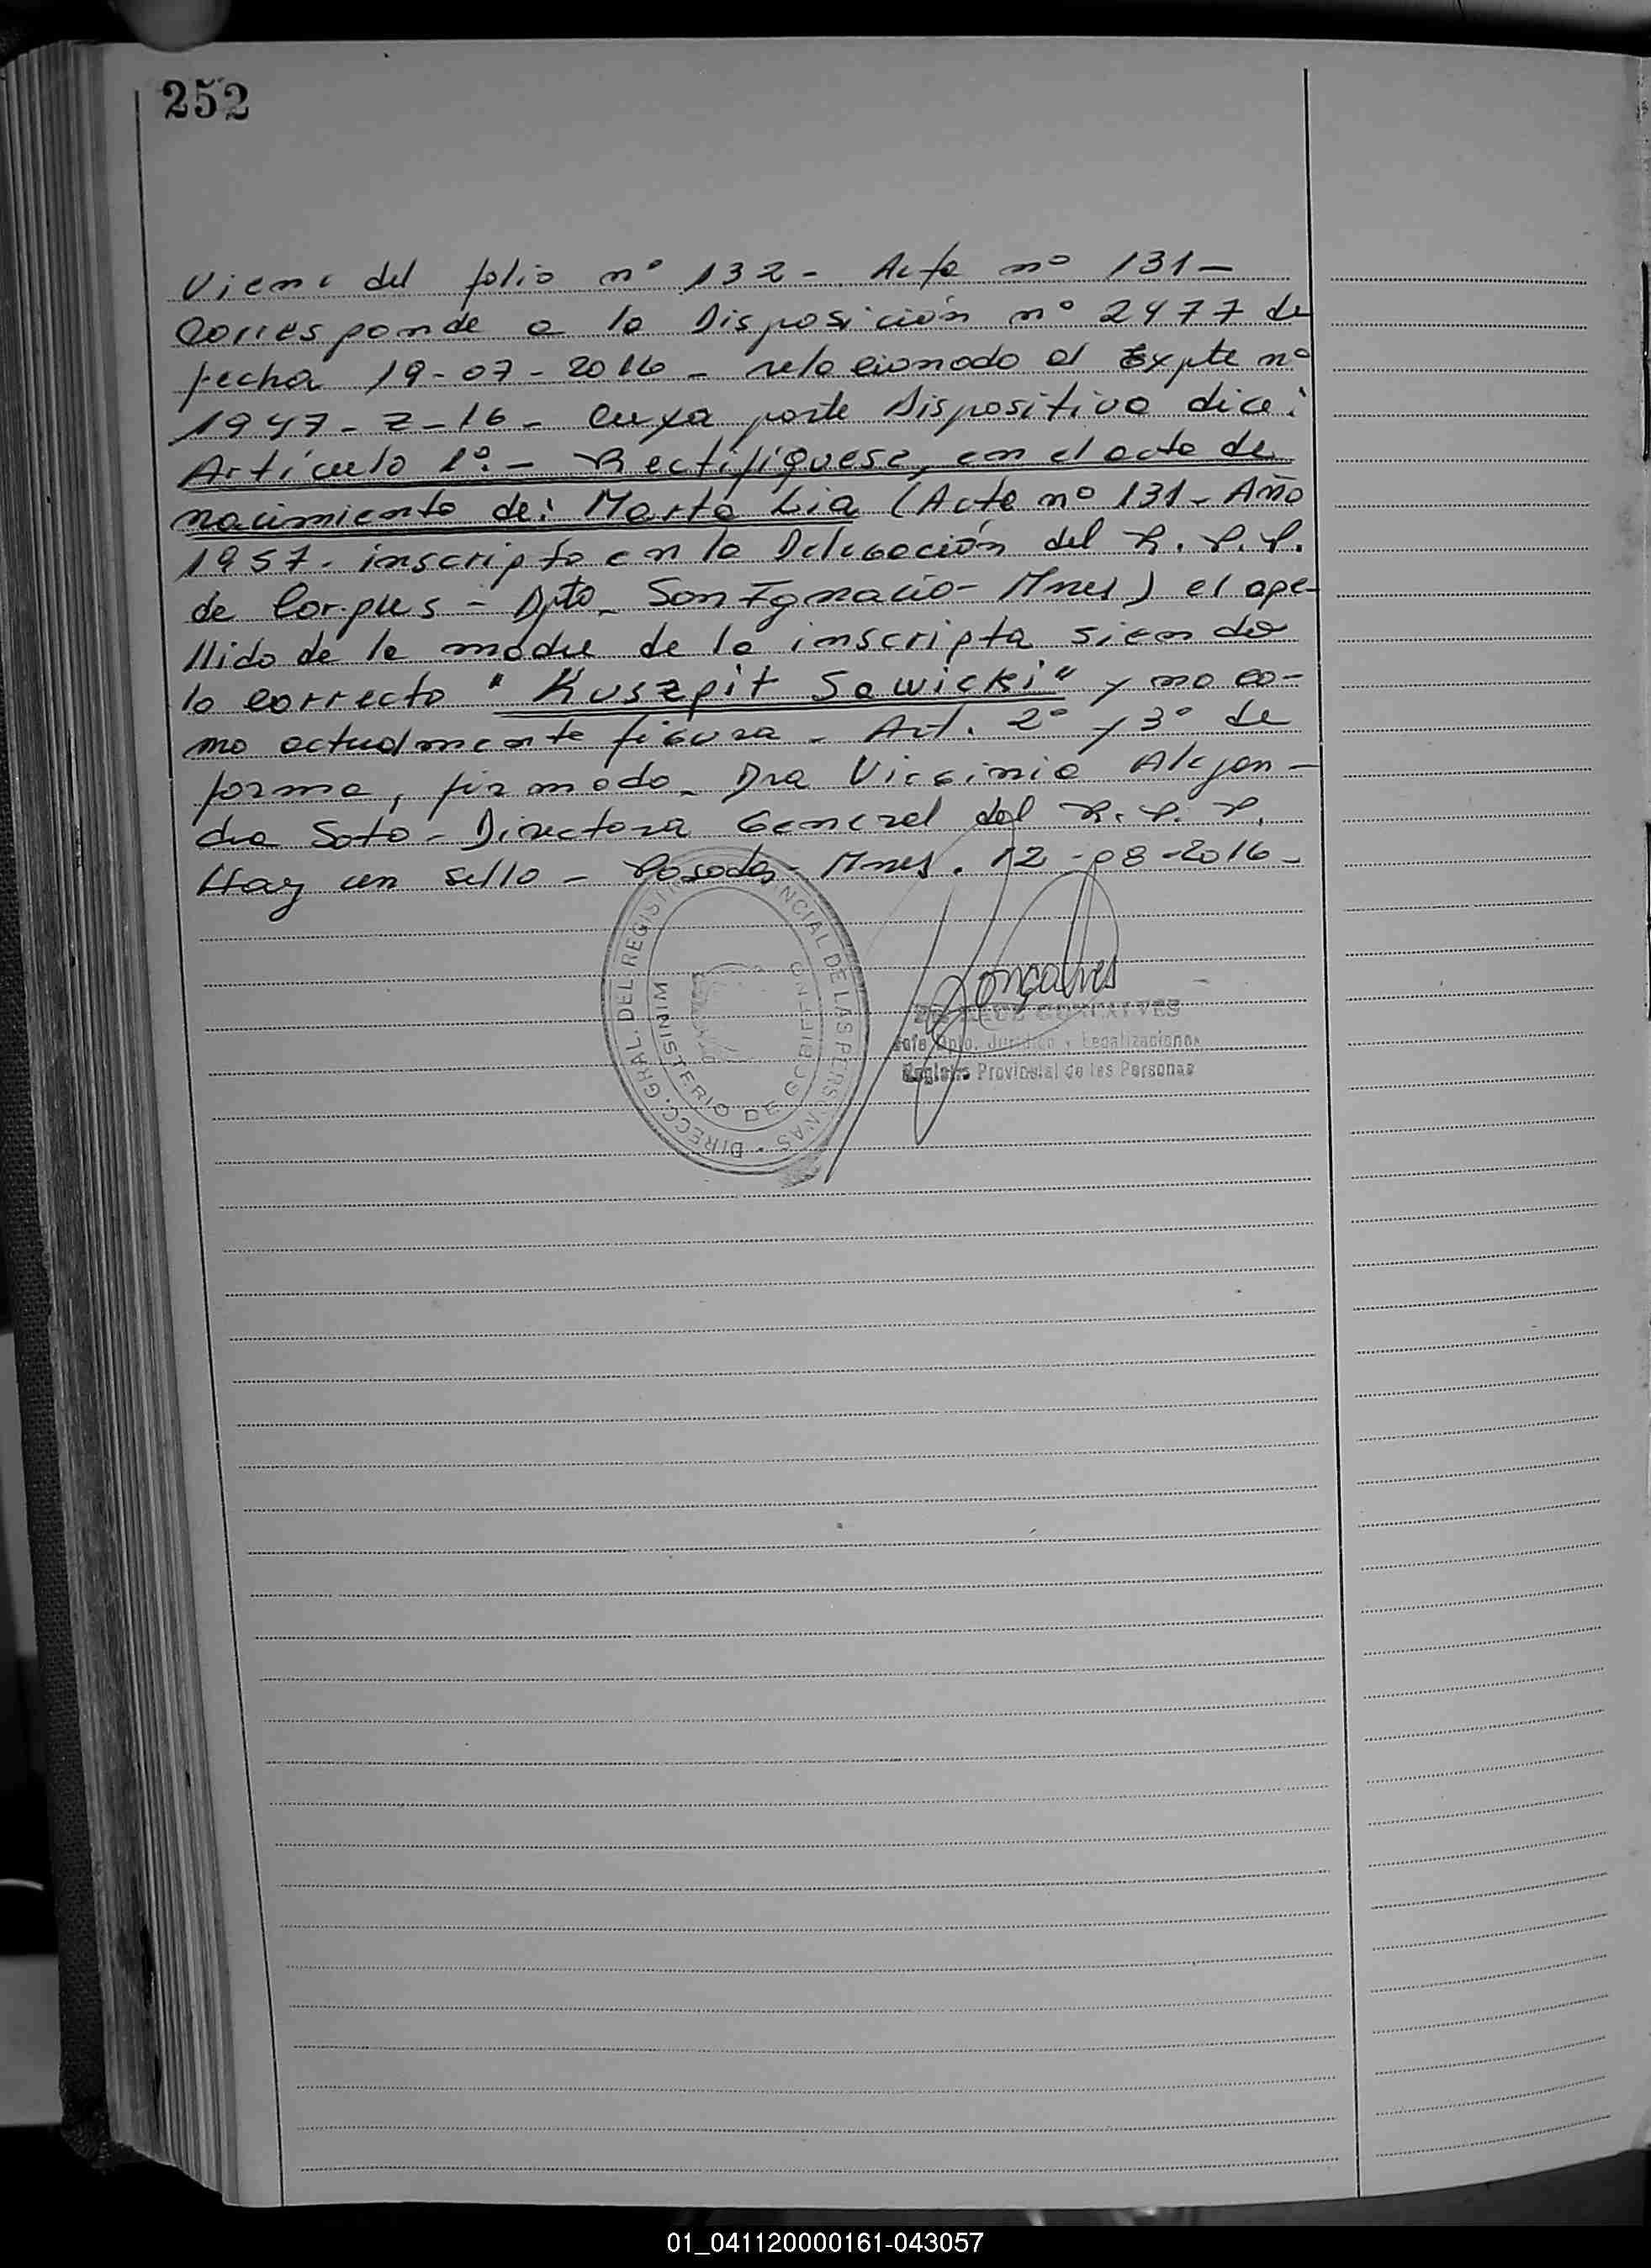 252
Viene del folio nº 132 - Acta nº 131 -
Corresponde a la Disposición nº 2477 de
fecha 19-07-2016 - relacionado al Expte nº
1947-Z-16 - Cuya parte Dispositiva dice:
Artículo 1º. - Rectifíquese, en el acta de
nacimiento de: Marta Lia (Acta nº 131 - Año
1957 - inscripta en la Delegación del R. P. P.
de Corpus - Dpto - San Ignacio - Mnes) el ape-
llido de la madre de la inscripta siendo
lo correcto "Kuszpit Sawicki" y no co-
mo actualmente figura - Art. 2º y 3º de
forma, firmado - Dra Virginia Alejan-
dra Soto - Directora General del R. P. P.
Hay un sello - Posadas - Mnes. 12-08-2016 -
DIRECC. GRAL. DEL REGISTRO PROVINCIAL DE LAS PERSONAS
MINISTERIO DE GOBIERNO
Goncalves
GONCALVES
Jefe Dpto. Jurídico y Legalizaciones
Registro Provincial de las Personas
01_041120000161-043057